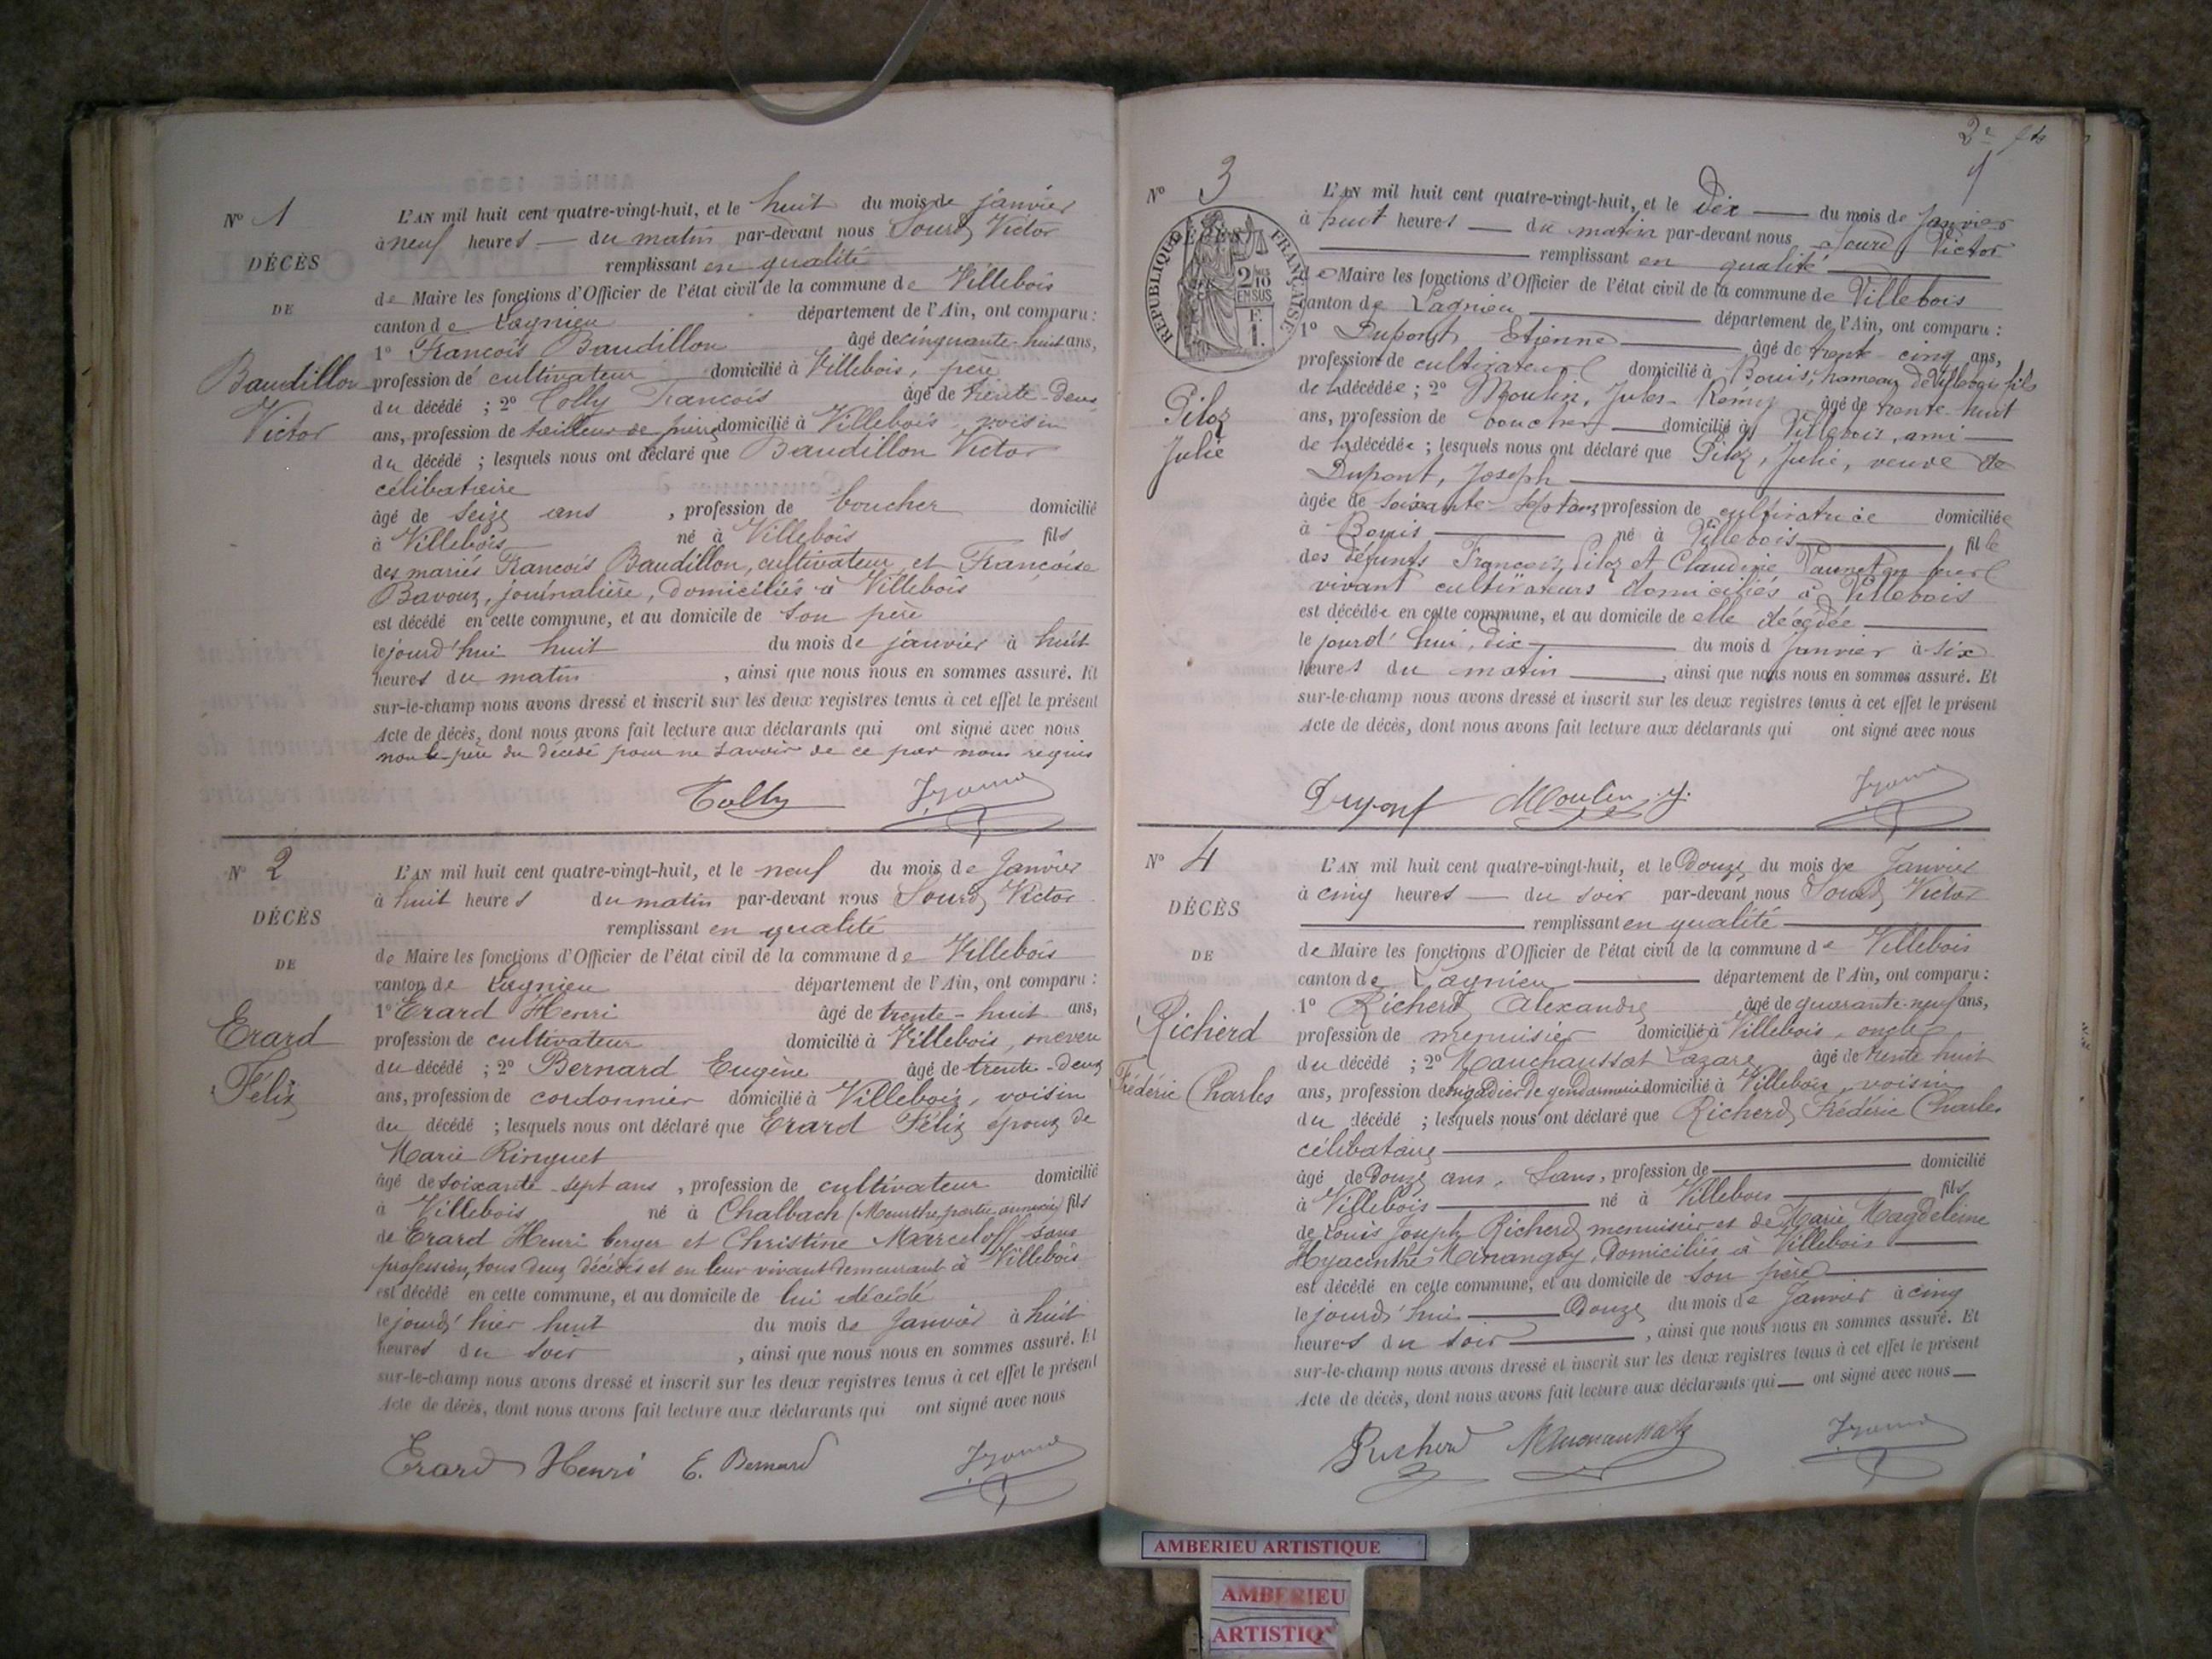 Nº 1
DÉCÈS
DE
Baudillon
Victor
L'AN mil huit cent quatre-vingt-huit, et le huit du mois de janvier
à neuf heures — du matin par-devant nous Sourd Victor
remplissant en qualité
de Maire les fonctions d'Officier de l'état civil de la commune de Villebois
canton de Lagnieu département de l'Ain, ont comparu :
1º François Baudillon âgé de cinquante-huit ans,
profession de cultivateur domicilié à Villebois, père
du décédé ; 2º Colly François âgé de trente-deux
ans, profession de tailleur de pierre domicilié à Villebois voisin
du décédé ; lesquels nous ont déclaré que Baudillon Victor
célibataire
âgé de seize ans , profession de boucher domicilié
à Villebois né à Villebois fils
des mariés François Baudillon, cultivateur et Françoise
Bavouz, journalière, domiciliés à Villebois
est décédé en cette commune, et au domicile de son père
le jourd'hui huit du mois de janvier à huit
heures du matin , ainsi que nous nous en sommes assuré. Et
sur-le-champ nous avons dressé et inscrit sur les deux registres tenus à cet effet le présent
Acte de décès, dont nous avons fait lecture aux déclarants qui ont signé avec nous
non le père du décédé pour ne savoir de ce par nous requis
Colly
Nº 2
DÉCÈS
DE
Erard
Félix
L'AN mil huit cent quatre-vingt-huit, et le neuf du mois de Janvier
à huit heures du matin par-devant nous Sourd Victor
remplissant en qualité
de Maire les fonctions d'Officier de l'état civil de la commune de Villebois
canton de Lagnieu département de l'Ain, ont comparu :
1º Erard Henri âgé de trente-huit ans,
profession de cultivateur domicilié à Villebois, neveu
du décédé ; 2º Bernard Eugène âgé de trente-deux
ans, profession de cordonnier domicilié à Villebois, voisin
du décédé ; lesquels nous ont déclaré que Erard Félix époux de
Marie Ringuet
âgé de soixante-sept ans , profession de cultivateur domicilié
à Villebois né à Chalbach (Meurthe, partie annexée) fils
de Erard Henri berger et Christine Marceloff sans
profession, tous deux décédés et en leur vivant demeurant à Villebois
est décédé en cette commune, et au domicile de lui décédé
le jourd'hier huit du mois de Janvier à huit
heures du soir , ainsi que nous nous en sommes assuré. Et
sur-le-champ nous avons dressé et inscrit sur les deux registres tenus à cet effet le présent
Acte de décès, dont nous avons fait lecture aux déclarants qui ont signé avec nous
Erard Henri E. Bernard
2e
Nº 3
DÉCÈS
RÉPUBLIQUE FRANÇAISE
2/10 EN SUS
F. 1.
Piloz
Julie
L'AN mil huit cent quatre-vingt-huit, et le Dix — du mois de Janvier
à huit heures — du matin par-devant nous Sourd Victor
remplissant en qualité
de Maire les fonctions d'Officier de l'état civil de la commune de Villebois
canton de Lagnieu département de l'Ain, ont comparu :
1º Dupont Etienne âgé de trente-cinq ans,
profession de cultivateur domicilié à Bouis, hameau de Villebois fils
de la décédée ; 2º Moulin, Jules-Remy âgé de trente-huit
ans, profession de boucher — domicilié à Villebois, ami —
de la décédée ; lesquels nous ont déclaré que Piloz, Julie, veuve de
Dupont, Joseph
âgée de soixante-sept ans, profession de cultivatrice domiciliée
à Bouis né à Villebois fille
des défunts François Piloz et Claudine en leur
vivant cultivateurs domiciliés à Villebois
est décédée en cette commune, et au domicile de elle décédée
le jourd'hui, dix du mois d Janvier à six
heures du matin , ainsi que nous nous en sommes assuré. Et
sur-le-champ nous avons dressé et inscrit sur les deux registres tenus à cet effet le présent
Acte de décès, dont nous avons fait lecture aux déclarants qui ont signé avec nous
Dupont Moulin. J.
Nº 4
DÉCÈS
DE
Richerd
Frédéric Charles
L'AN mil huit cent quatre-vingt-huit, et le Douze du mois de Janvier
à cinq heures — du soir par-devant nous Sourd Victor
remplissant en qualité
de Maire les fonctions d'Officier de l'état civil de la commune de Villebois
canton de Lagnieu département de l'Ain, ont comparu :
1º Richerd Alexandre âgé de quarante-neuf ans,
profession de menuisier domicilié à Villebois, oncle
du décédé ; 2º Mauchaussat Lazare âgé de trente huit
ans, profession de brigadier de gendarmerie domicilié à Villebois, voisin
du décédé ; lesquels nous ont déclaré que Richerd Frédéric Charles
célibataire
âgé de Douze ans, Sans, profession de domicilié
à Villebois né à Villebois fils
de Louis Joseph Richerd menuisier et de Marie Magdeleine
Hyacinthe Minangoy, Domiciliés à Villebois
est décédé en cette commune, et au domicile de son père
le jourd'hui — Douze du mois de Janvier à cinq
heures du soir , ainsi que nous nous en sommes assuré. Et
sur-le-champ nous avons dressé et inscrit sur les deux registres tenus à cet effet le présent
Acte de décès, dont nous avons fait lecture aux déclarants qui — ont signé avec nous —
Richerd Mauchaussat
AMBERIEU ARTISTIQUE
AMBERIEU
ARTISTIQ